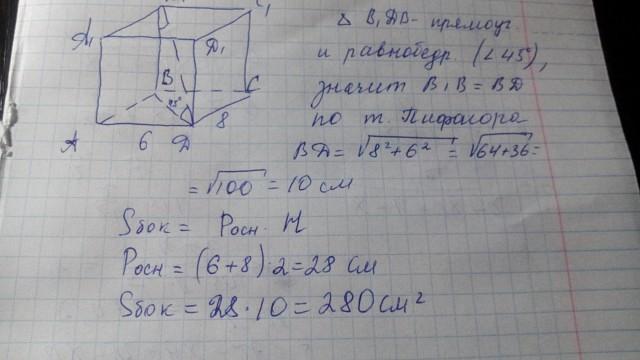 C₁
A₁
D₁
B
C
45°
A
6
D
8
Δ B₁DB - прямоуг.
и равнобедр. (∠45°),
значит B₁B = BD
по т. Пифагора
BD = √8²+6² = √64+36 =
= √100 = 10 см
Sбок = Pосн · H
Pосн = (6+8)·2=28 см
Sбок = 28·10=280см²